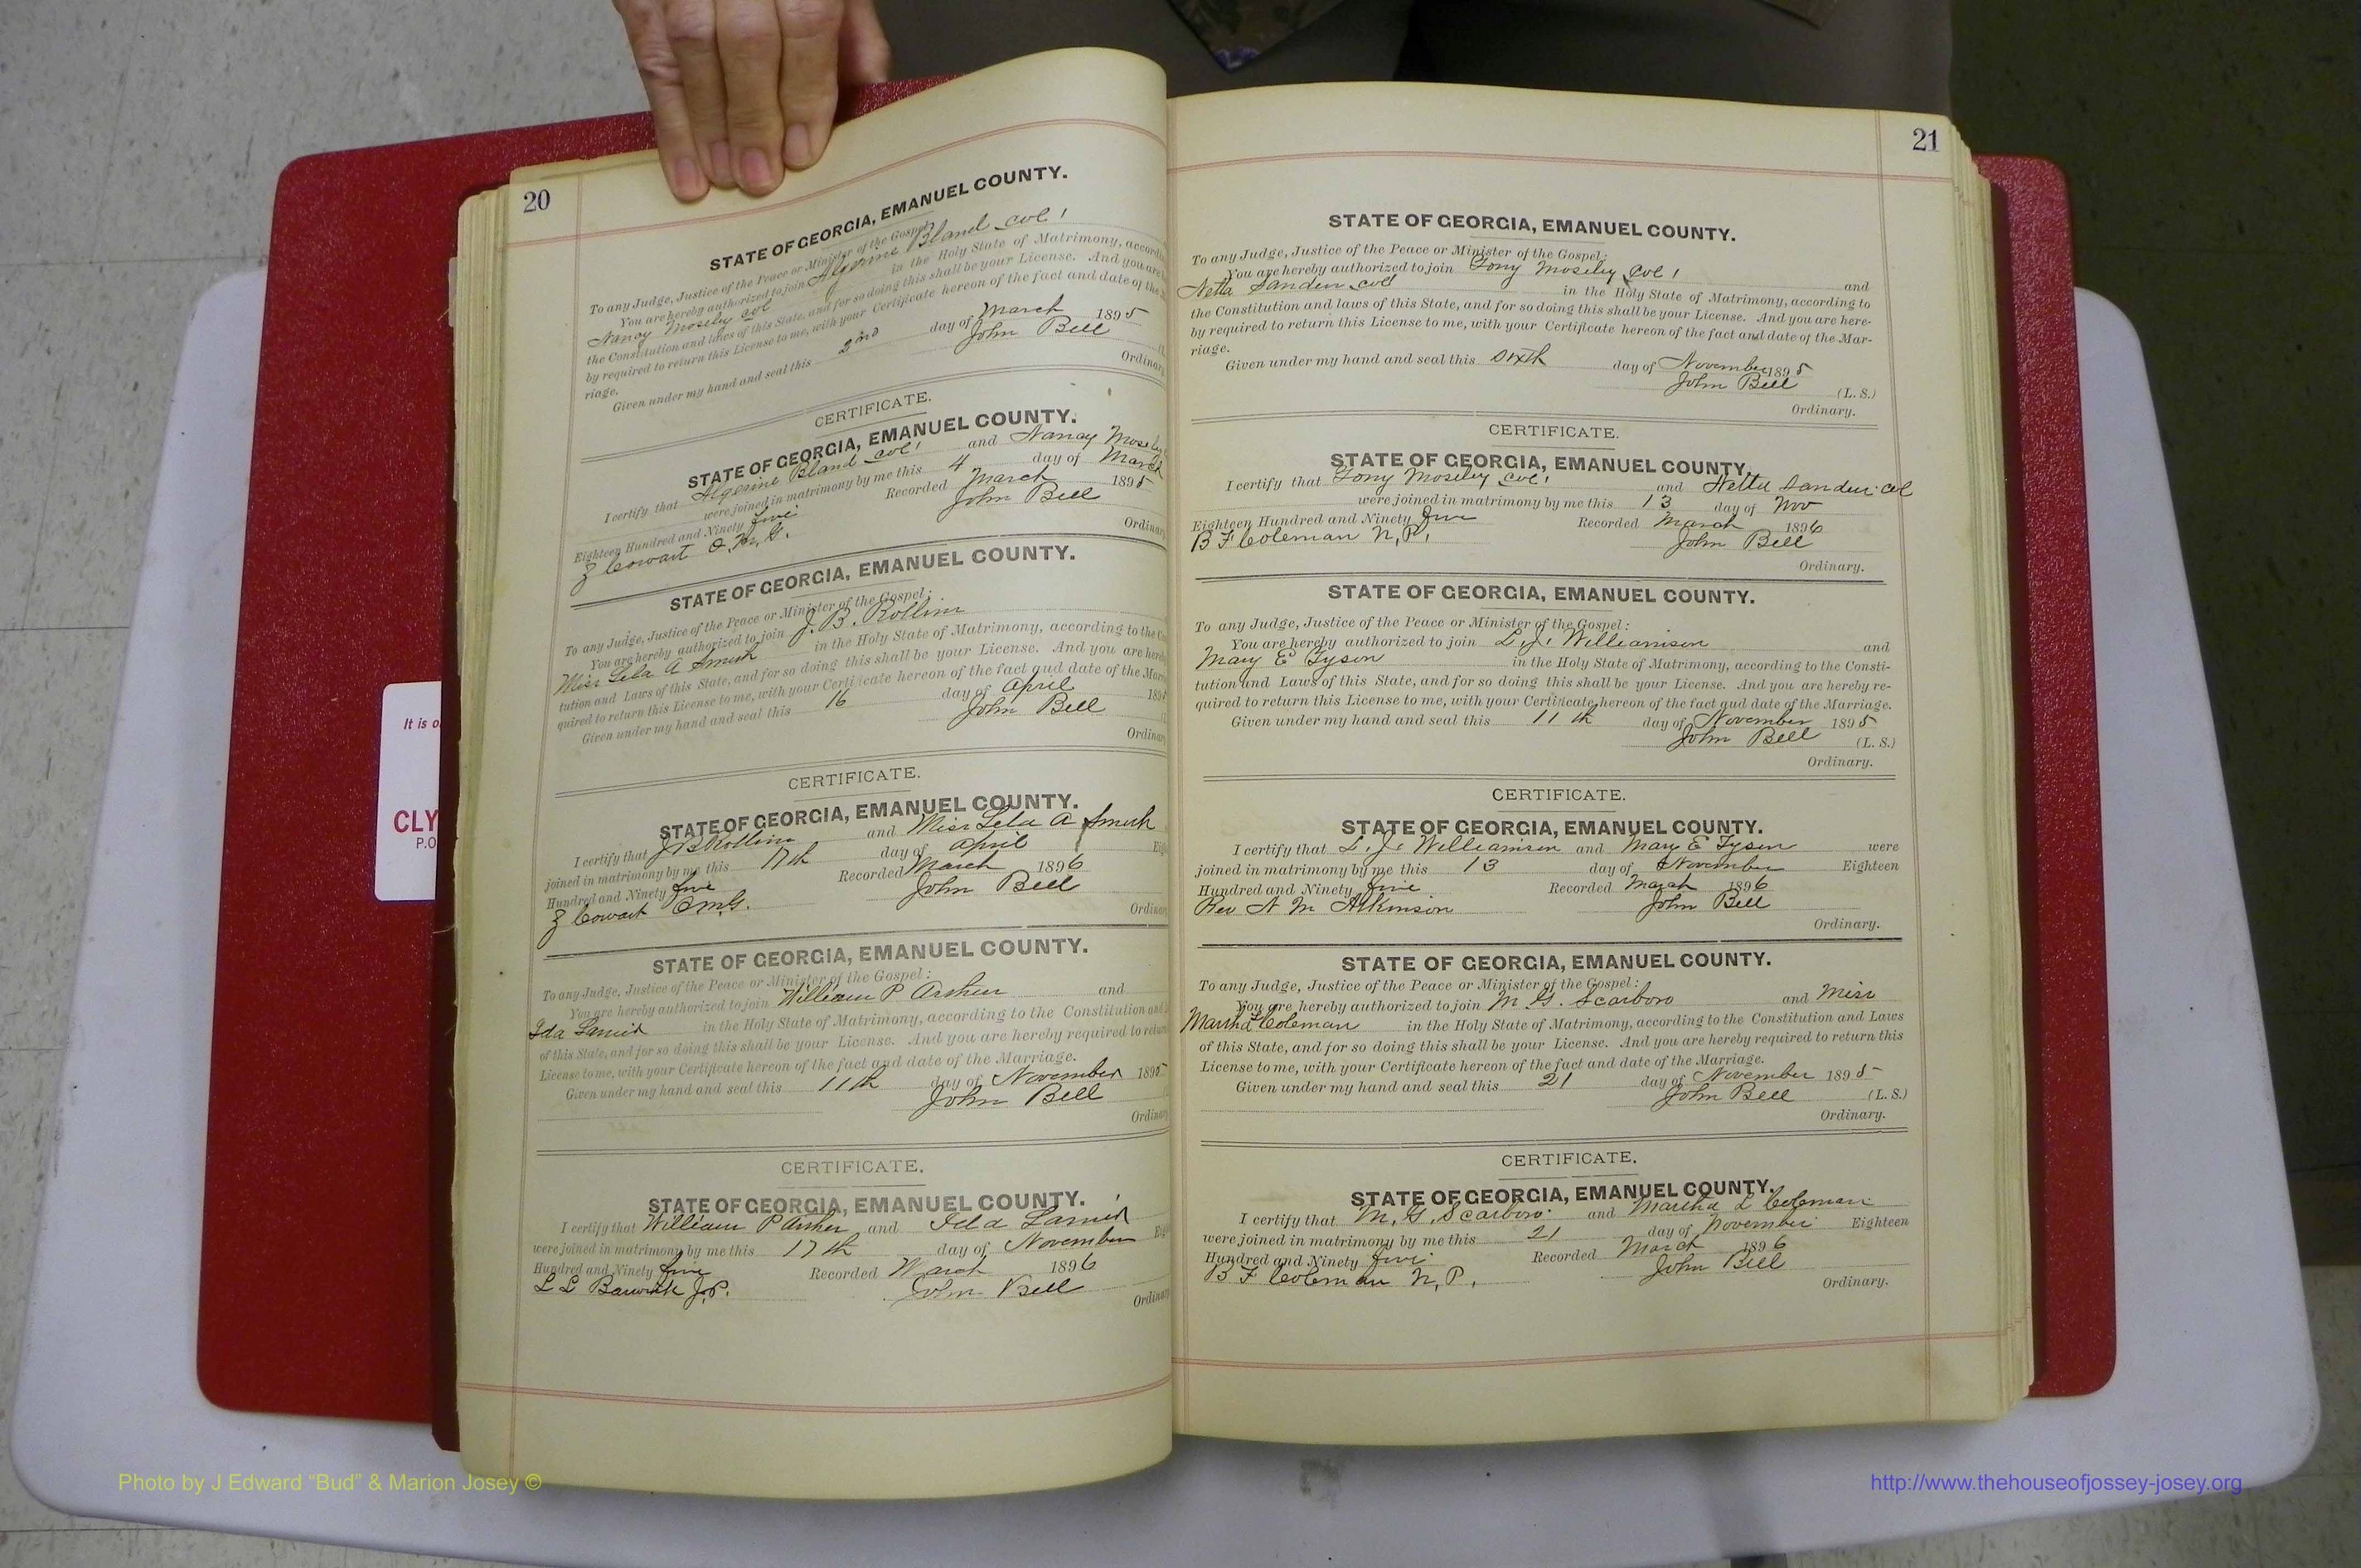 20
STATE OF GEORGIA, EMANUEL COUNTY.
To any Judge, Justice of the Peace or Minister of the Gospel:
You are hereby authorized to join Algerine Bland col
Nancy Mosely col in the Holy State of Matrimony, accordi
the Constitution and laws of this State, and for so doing this shall be your License. And you are
by required to return this License to me, with your Certificate hereon of the fact and date of the
riage.
Given under my hand and seal this 2nd day of March 1895
John Bell
Ordinar
CERTIFICATE.
STATE OF GEORGIA, EMANUEL COUNTY.
I certify that Algerine Bland col and Nancy Mosely
were joined in matrimony by me this 4 day of March
Eighteen Hundred and Ninety five Recorded March 1895
Z Cowart O.M.G. John Bell
Ordinar
STATE OF GEORGIA, EMANUEL COUNTY.
To any Judge, Justice of the Peace or Minister of the Gospel:
You are hereby authorized to join J. B. Rollins
Miss Lela A Smith in the Holy State of Matrimony, according to the
tution and Laws of this State, and for so doing this shall be your License. And you are
quired to return this License to me, with your Certificate hereon of the fact and date of the
Given under my hand and seal this 16 day of April 189
John Bell
Ordinar
CERTIFICATE.
STATE OF GEORGIA, EMANUEL COUNTY.
I certify that J B Rollins and Miss Lela A Smith
joined in matrimony by me this 17th day of April
Hundred and Ninety five Recorded March 1896
Z Cowart O.M.G. John Bell
Ordinar
STATE OF GEORGIA, EMANUEL COUNTY.
To any Judge, Justice of the Peace or Minister of the Gospel:
You are hereby authorized to join William P Archer and
Ida Lamid in the Holy State of Matrimony, according to the Constitution and
of this State, and for so doing this shall be your License. And you are hereby required to return
License to me, with your Certificate hereon of the fact and date of the Marriage.
Given under my hand and seal this 11th day of November 1895
John Bell
Ordinar
CERTIFICATE.
STATE OF GEORGIA, EMANUEL COUNTY.
I certify that William P Archer and Ida Lamid
were joined in matrimony by me this 17th day of November
Hundred and Ninety five Recorded March 1896
L L Barwick J.P. John Bell
Ordinar
21
STATE OF GEORGIA, EMANUEL COUNTY.
To any Judge, Justice of the Peace or Minister of the Gospel:
You are hereby authorized to join Tony Moseley col and
Netta Sanders col in the Holy State of Matrimony, according to
the Constitution and laws of this State, and for so doing this shall be your License. And you are here-
by required to return this License to me, with your Certificate hereon of the fact and date of the Mar-
riage.
Given under my hand and seal this sixth day of November 1895
John Bell (L. S.)
Ordinary.
CERTIFICATE.
STATE OF GEORGIA, EMANUEL COUNTY.
I certify that Tony Moseley col and Netta Sanders col
were joined in matrimony by me this 13 day of Nov
Eighteen Hundred and Ninety five Recorded March 1896
B F Coleman N, P, John Bell
Ordinary.
STATE OF GEORGIA, EMANUEL COUNTY.
To any Judge, Justice of the Peace or Minister of the Gospel:
You are hereby authorized to join L. J. Williamson and
Mary E Tyson in the Holy State of Matrimony, according to the Consti-
tution and Laws of this State, and for so doing this shall be your License. And you are hereby re-
quired to return this License to me, with your Certificate hereon of the fact and date of the Marriage.
Given under my hand and seal this 11 th day of November 1895
John Bell (L. S.)
Ordinary.
CERTIFICATE.
STATE OF GEORGIA, EMANUEL COUNTY.
I certify that L. J. Williamson and Mary E Tyson were
joined in matrimony by me this 13 day of November Eighteen
Hundred and Ninety five Recorded March 1896
Rev N M Atkinson John Bell
Ordinary.
STATE OF GEORGIA, EMANUEL COUNTY.
To any Judge, Justice of the Peace or Minister of the Gospel:
You are hereby authorized to join M. G. Scarboro and Miss
Martha L Coleman in the Holy State of Matrimony, according to the Constitution and Laws
of this State, and for so doing this shall be your License. And you are hereby required to return this
License to me, with your Certificate hereon of the fact and date of the Marriage.
Given under my hand and seal this 21 day of November 1895
John Bell (L. S.)
Ordinary.
CERTIFICATE.
STATE OF GEORGIA, EMANUEL COUNTY.
I certify that M. G. Scarboro and Martha L Coleman
were joined in matrimony by me this 21 day of November Eighteen
Hundred and Ninety five Recorded March 1896
B F Coleman N, P, John Bell
Ordinary.
It is o
CLY
P.O
Photo by J Edward “Bud” & Marion Josey ©
http://www.thehouseofjossey-josey.org